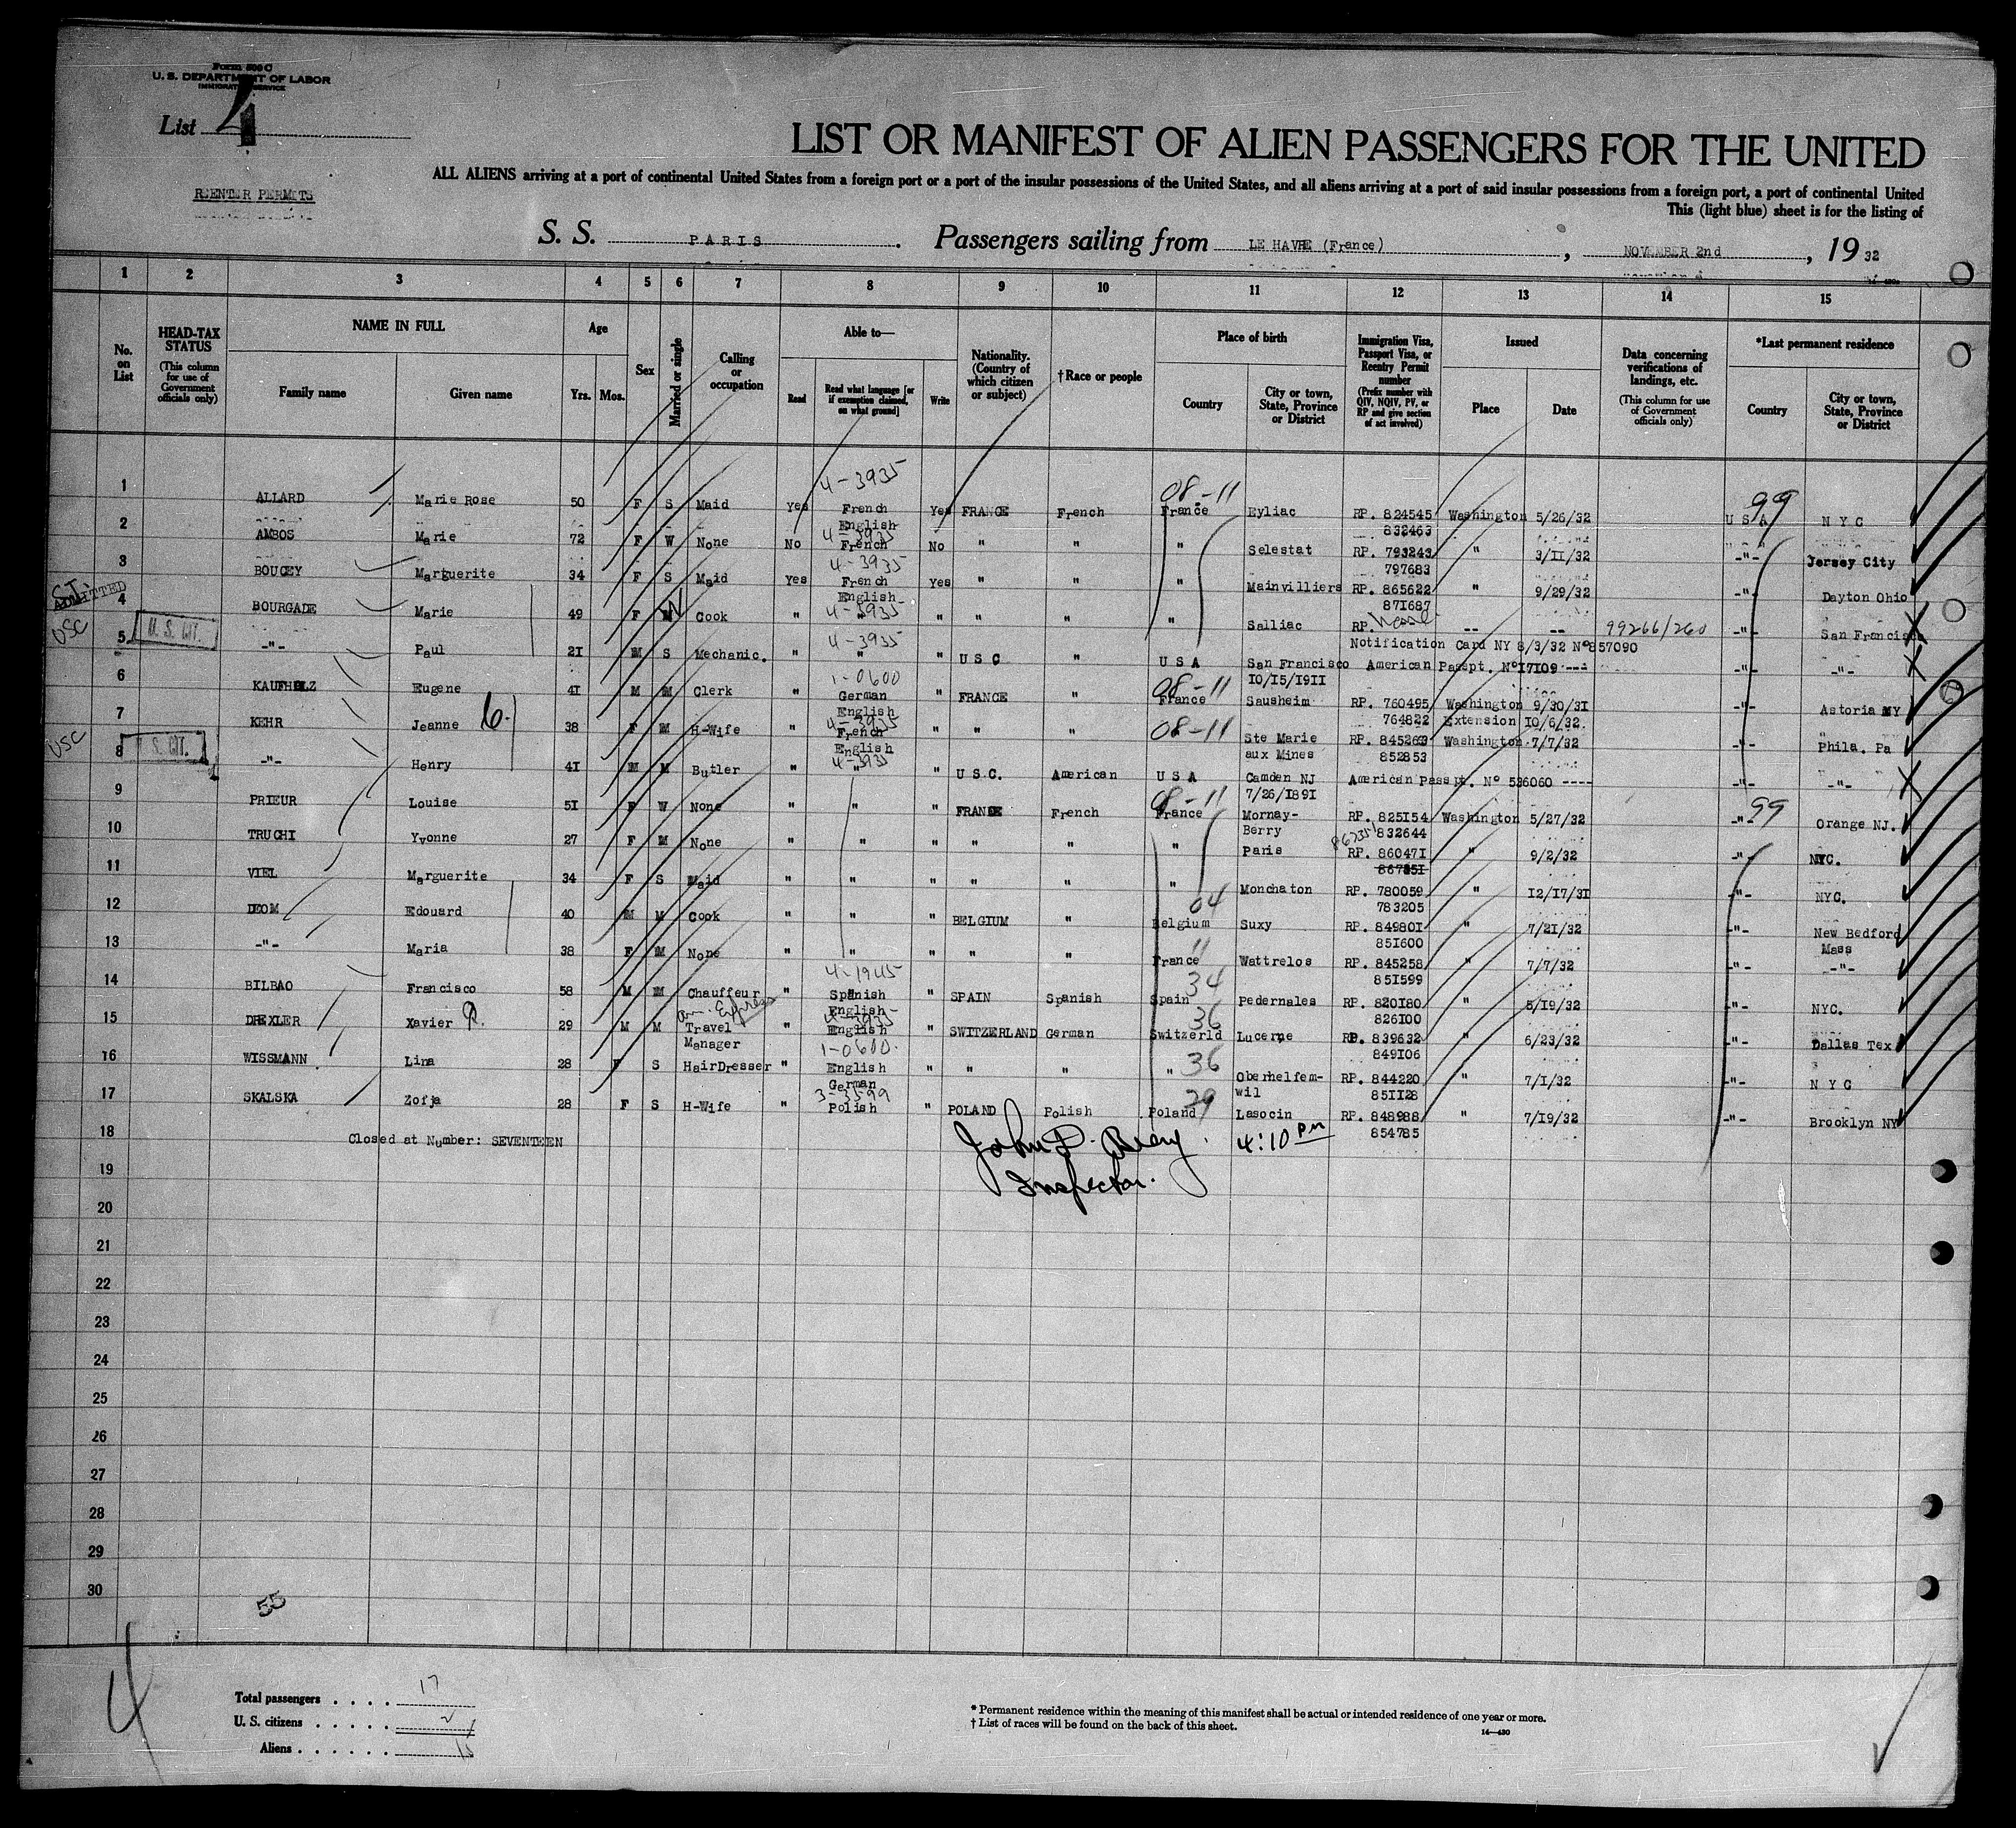 Form 500 C
U. S. DEPARTMENT OF LABOR
IMMIGRATION SERVICE
List 4
REENTER PERMITS
LIST OR MANIFEST OF ALIEN PASSENGERS FOR THE UNITED
ALL ALIENS arriving at a port of continental United States from a foreign port or a port of the insular possessions of the United States, and all aliens arriving at a port of said insular possessions from a foreign port, a port of continental United
This (light blue) sheet is for the listing of
S. S. PARIS. Passengers sailing from LE HAVRE (France), NOVEMBER 2nd, 19 32
1 2 3 4 5 6 7 8 9 10 11 12 13 14 15
No. on List
HEAD-TAX STATUS (This column for use of Government officials only)
NAME IN FULL Family name Given name
Age Yrs. Mos.
Sex
Married or single
Calling or occupation
Able to— Read Read what language [or if exemption claimed, on what ground] Write
Nationality. (Country of which citizen or subject)
†Race or people
Place of birth Country City or town, State, Province or District
Immigration Visa, Passport Visa, or Reentry Permit number (Prefix number with QIV, NQIV, PV, or RP and give section of act involved)
Issued Place Date
Data concerning verifications of landings, etc. (This column for use of Government officials only)
*Last permanent residence Country City or town, State, Province or District
4-3935 08-11 99
1 ALLARD Marie Rose 50 F S Maid Yes French English Yes FRANCE French France Eyliac RP. 824545 832463 Washington 5/26/32 U S A N Y C
4-3935
2 AMBOS Marie 72 F W None No French No " " " Selestat RP. 793243 797683 " 3/11/32 -"- Jersey City
4-3935
3 BOUCEY Marguerite 34 F S Maid Yes French English Yes " " " Mainvilliers RP. 865622 871687 " 9/29/32 -"- Dayton Ohio
S.I. ADMITTED
4-3935
4 BOURGADE Marie 49 F M W Cook " " " " " " Salliac RP. -- -- 99266/260 -"- San Francisco
Notification Card NY 8/3/32 Nº857090
USC U. S. CIT.
4-3935
5 -"- Paul 21 M S Mechanic. " " " U S C " U S A San Francisco 10/15/1911 American Passpt. Nº17109 --- -"- -"-
1-0600 08-11
6 KAUFHOLZ Eugene 41 M M Clerk " German English " FRANCE " France Sausheim RP. 760495 764822 Washington 9/30/31 Extension 10/6/32. -"- Astoria NY
4-3935 08-11
7 KEHR Jeanne 38 F M H-Wife " French English " " " Ste Marie aux Mines RP. 845263 852853 Washington 7/7/32 -"- Phila. Pa
USC U. S. CIT.
4-3935
8 -"- Henry 41 M M Butler " " " U S C. American U S A Camden NJ 7/26/1891 American Passpt. Nº 536060 ---- -"- -"-
08-11 99
9 PRIEUR Louise 51 F W None " " " FRANCE French France Mornay-Berry RP. 825154 832644 Washington 5/27/32 -"- Orange NJ.
10 TRUCHI Yvonne 27 F M None " " " " " " Paris RP. 860471 867351 " 9/2/32 -"- NYC.
11 VIEL Marguerite 34 F S Maid " " " " " " Monchaton RP. 780059 783205 " 12/17/31 -"- NYC.
04
12 DEOM Edouard 40 M M Cook " " " BELGIUM " Belgium Suxy RP. 849801 851600 " 7/21/32 -"- New Bedford Mass
11
13 -"- Maria 38 F M None " " " " " France Wattrelos RP. 845258 851599 " 7/7/32 -"- -"-
4-1945 34
14 BILBAO Francisco 58 M M Chauffeur " Spanish English " SPAIN Spanish Spain Pedernales RP. 820180 826100 " 5/19/32 -"- NYC.
Am. Express 4-3935 36
15 DREXLER Xavier 29 M M Travel Manager " English " SWITZERLAND German Switzerld Lucerne RP. 839632 849106 " 6/23/32 -"- Dallas Tex
1-0600. 36
16 WISSMANN Lina 28 F S HairDresser " English German " " " " Oberhelfemwil RP. 844220 851128 " 7/1/32 -"- N Y C
3-3599 29
17 SKALSKA Zofja 28 F S H-Wife " Polish " POLAND Polish Poland Lasocin RP. 848988 854785 " 7/19/32 -"- Brooklyn NY
18 Closed at Number: SEVENTEEN John D. 4:10 PM
Inspector.
19
20
21
22
23
24
25
26
27
28
29
30
55
4
Total passengers . . . . 17
U. S. citizens . . . . . 2
Aliens . . . . . . 15
* Permanent residence within the meaning of this manifest shall be actual or intended residence of one year or more.
† List of races will be found on the back of this sheet.
14—430